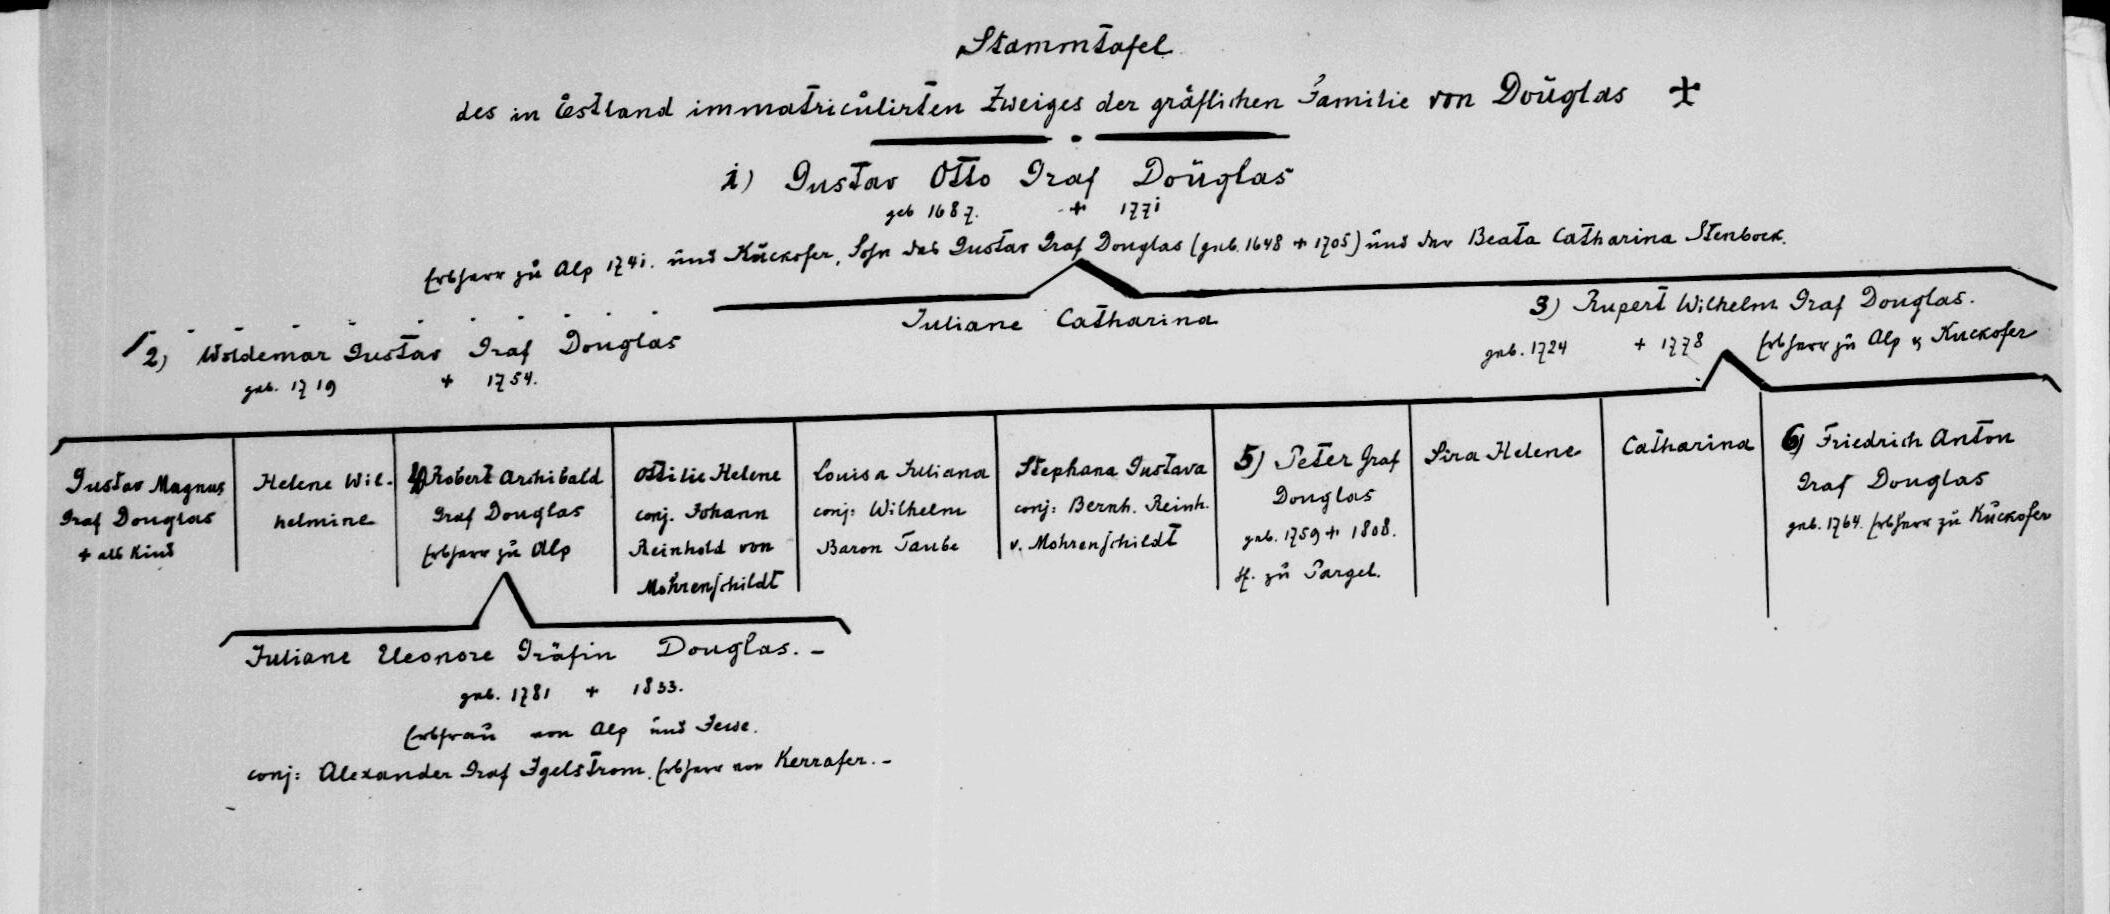 Stammtafel
des in Estland immatriculirten Zweiges der gräflichen Familie von Douglas ✝
1) Gustav Otto Graf Douglas
geb 1687. + 1771
Erbherr zu Alp 1741. und Kuckofer, Sohn des Gustav Graf Douglas (geb. 1648 + 1705) und der Beata Catharina Stenbock.
2) Woldemar Gustav Graf Douglas
geb. 1719 + 1754.
Juliane Catharina
3) Rupert Wilhelm Graf Douglas.
geb. 1724 + 1778 Erbherr zu Alp & Kuckofer
Gustav Magnus
Graf Douglas
+ als Kind
Helene Wil-
helmine
4) Robert Archibald
Graf Douglas
Erbherr zu Alp
Ottilie Helene
conj. Johann
Reinhold von
Mohrenschildt
Louisa Juliana
conj: Wilhelm
Baron Taube
Stephana Gustava
conj: Bernh. Reinh.
v. Mohrenschildt
5) Peter Graf
Douglas
geb. 1759 + 1808.
H. zu Pargel.
Sira Helene
Catharina
6) Friedrich Anton
Graf Douglas
geb. 1764. Erbherr zu Kuckofer
Juliane Eleonore Gräfin Douglas. -
geb. 1781 + 1833.
Erbfrau von Alp und Jesse.
conj: Alexander Graf Igelstrom. Erbherr von Kerrafer. -